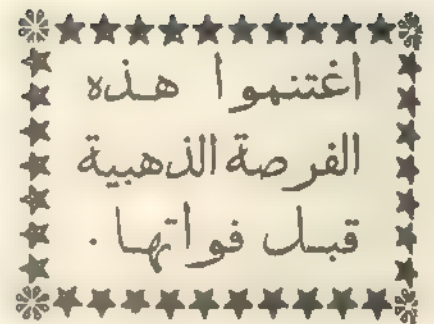 اغتنموا هذه
الفرصة الذهبية
قبل فواتها .